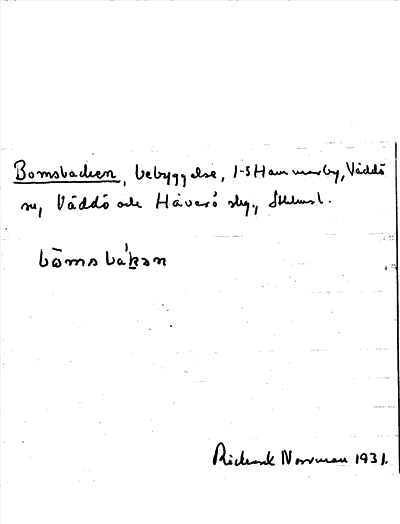 Bomsbacken, bebyggelse, 1-5 Hammarby, Väddö
sn, Väddö och Häverö skg., Sthlms l.
bōmsbákən
Rickard Norrman 1931.